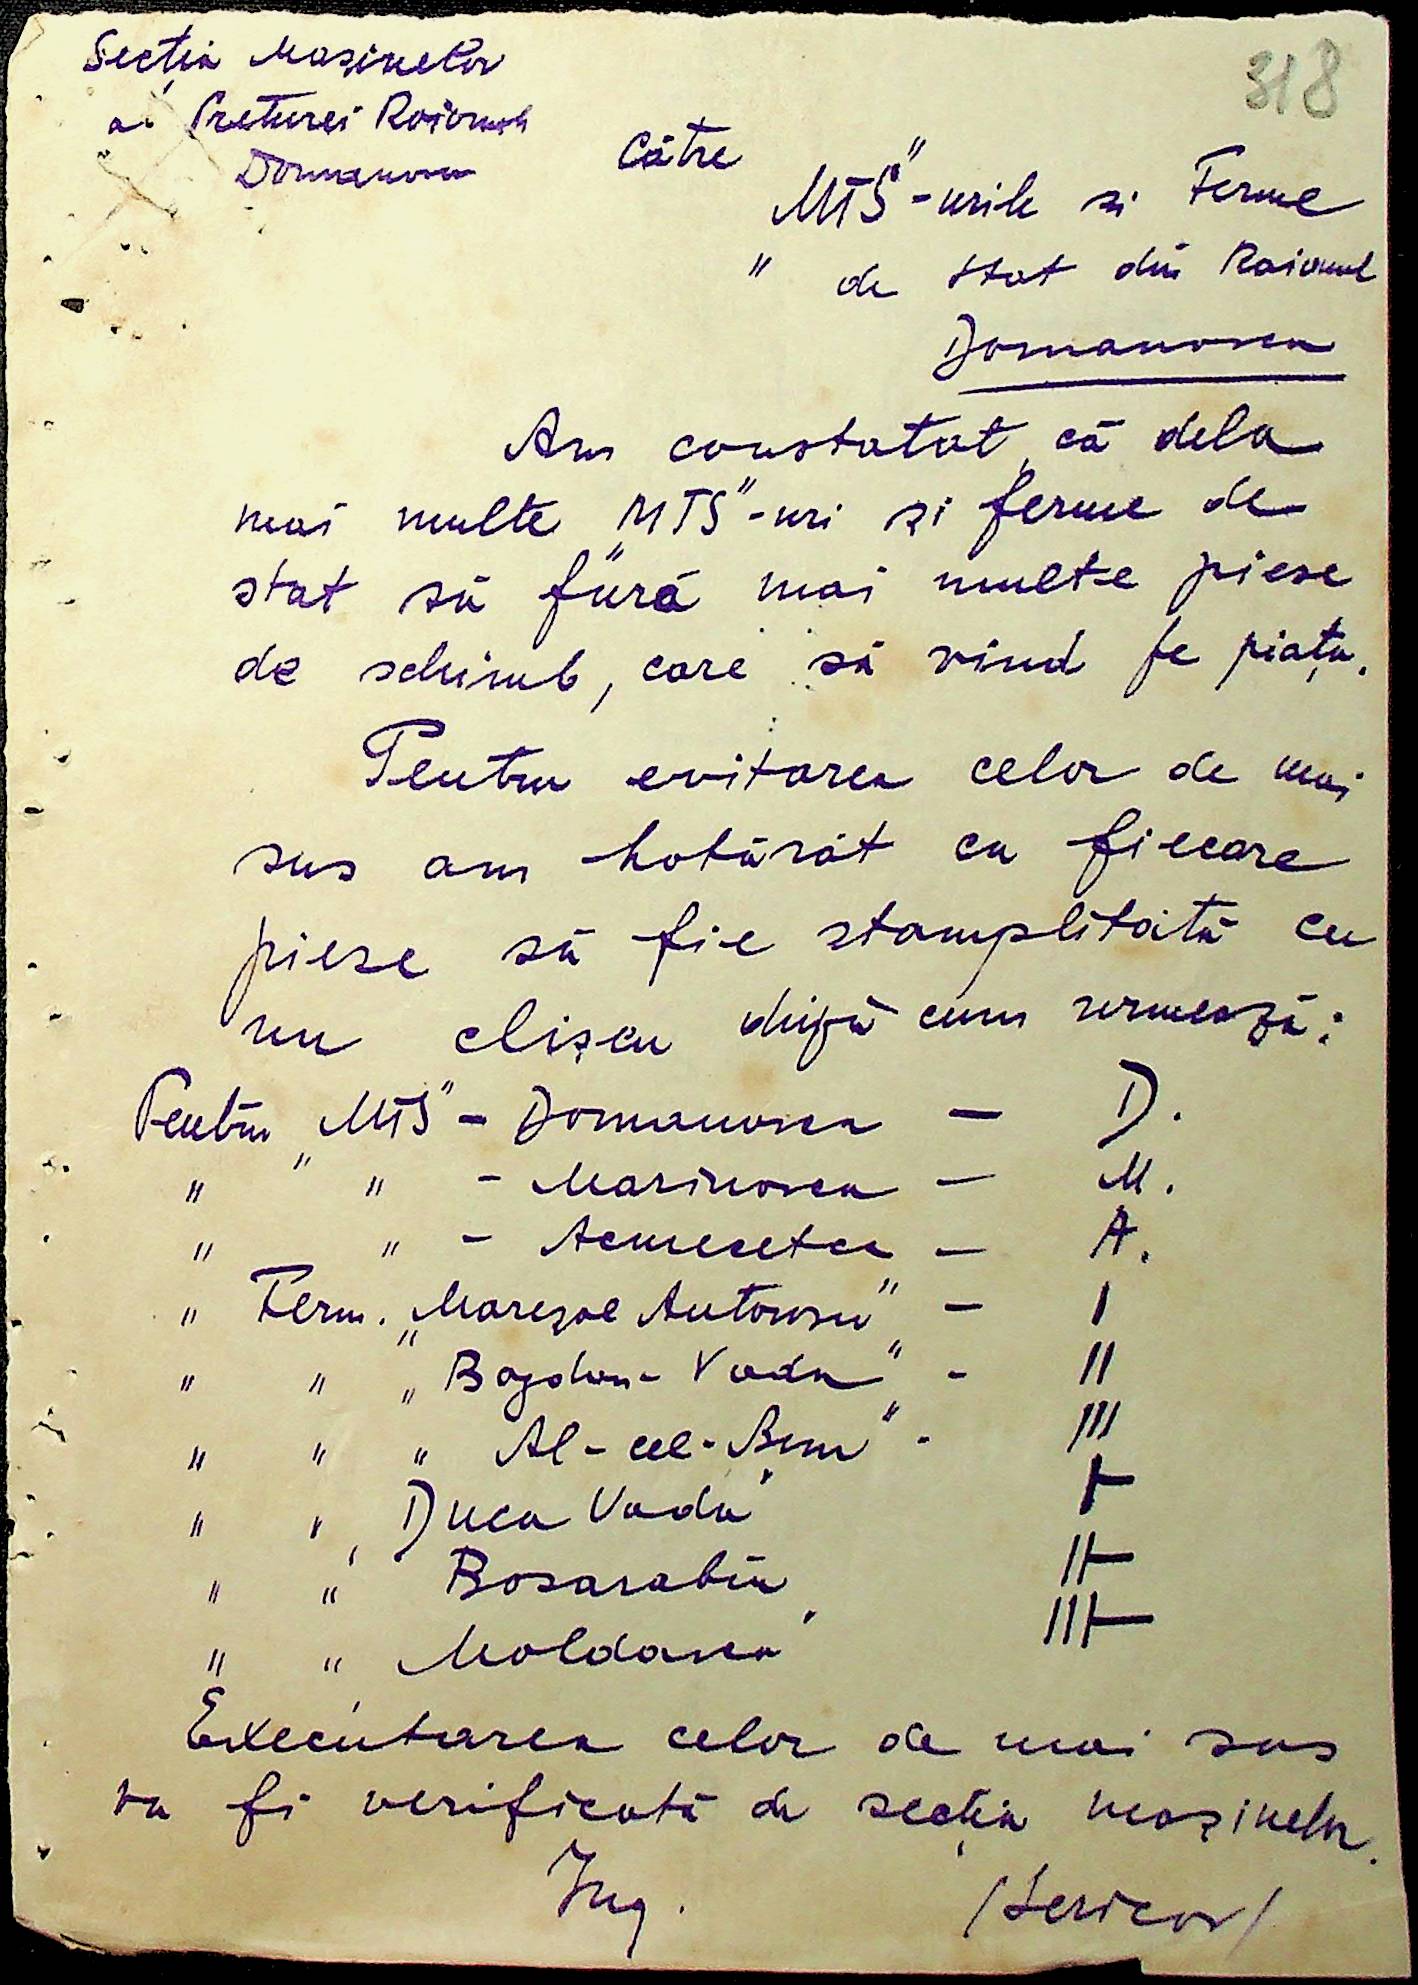 Secția Mașinelor
318
a Preturei Raionul
Domanovca
Către
"MTS"-urile si Ferme
" de stat din Raionul
Domanovca
Am constatat, că dela
mai multe "MTS"-uri și ferme de
stat să fură mai multe piese
de schimb, care să vind pe piața.
Pentru evitarea celor de mai
sus am hotărât ca fiecare
piese să fie stamplitată cu
un clișeu după cum urmează:
Pentru "MTS" - Domanovca — D.
" " - Marinovca — M.
" " - Acmecetca — A.
" Ferm. "Mareșal Antonescu" — I
" " "Bogdan-Voda" - II
" " " Al-cel-Bun" - III
" " "Duca Voda" ⊢
" " "Basarabia" I⊢
" " "Moldova" II⊢
Executarea celor de mai sus
va fi verificată de secția mașinelor.
Ing.